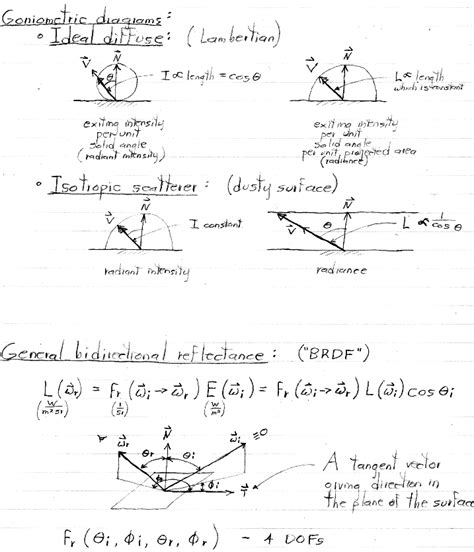 Goniometric diagrams:
• Ideal diffuse: (Lambertian)
V⃗ θ N⃗ I ∝ length = cosθ
V⃗ N⃗ L ∝ length
which is constant
exiting intensity
per unit
solid angle
(radiant intensity)
exiting intensity
per unit
solid angle
per unit projected area
(radiance)
• Isotropic scatterer: (dusty surface)
V⃗ N⃗ I constant
V⃗ θ N⃗ L ∝ 1/cosθ
radiant intensity
radiance
General bidirectional reflectance: ("BRDF")
L(ω⃗r) = fr(ω⃗i→ω⃗r) E(ω⃗i) = fr(ω⃗i→ω⃗r) L(ω⃗i) cosθi
(W/m²sr) (1/sr) (W/m²)
ω⃗r θr N⃗ θi ω⃗i
ϕi T⃗
A tangent vector
giving direction in
the plane of the surface
fr(θi, ϕi, θr, ϕr) – 4 DOFs